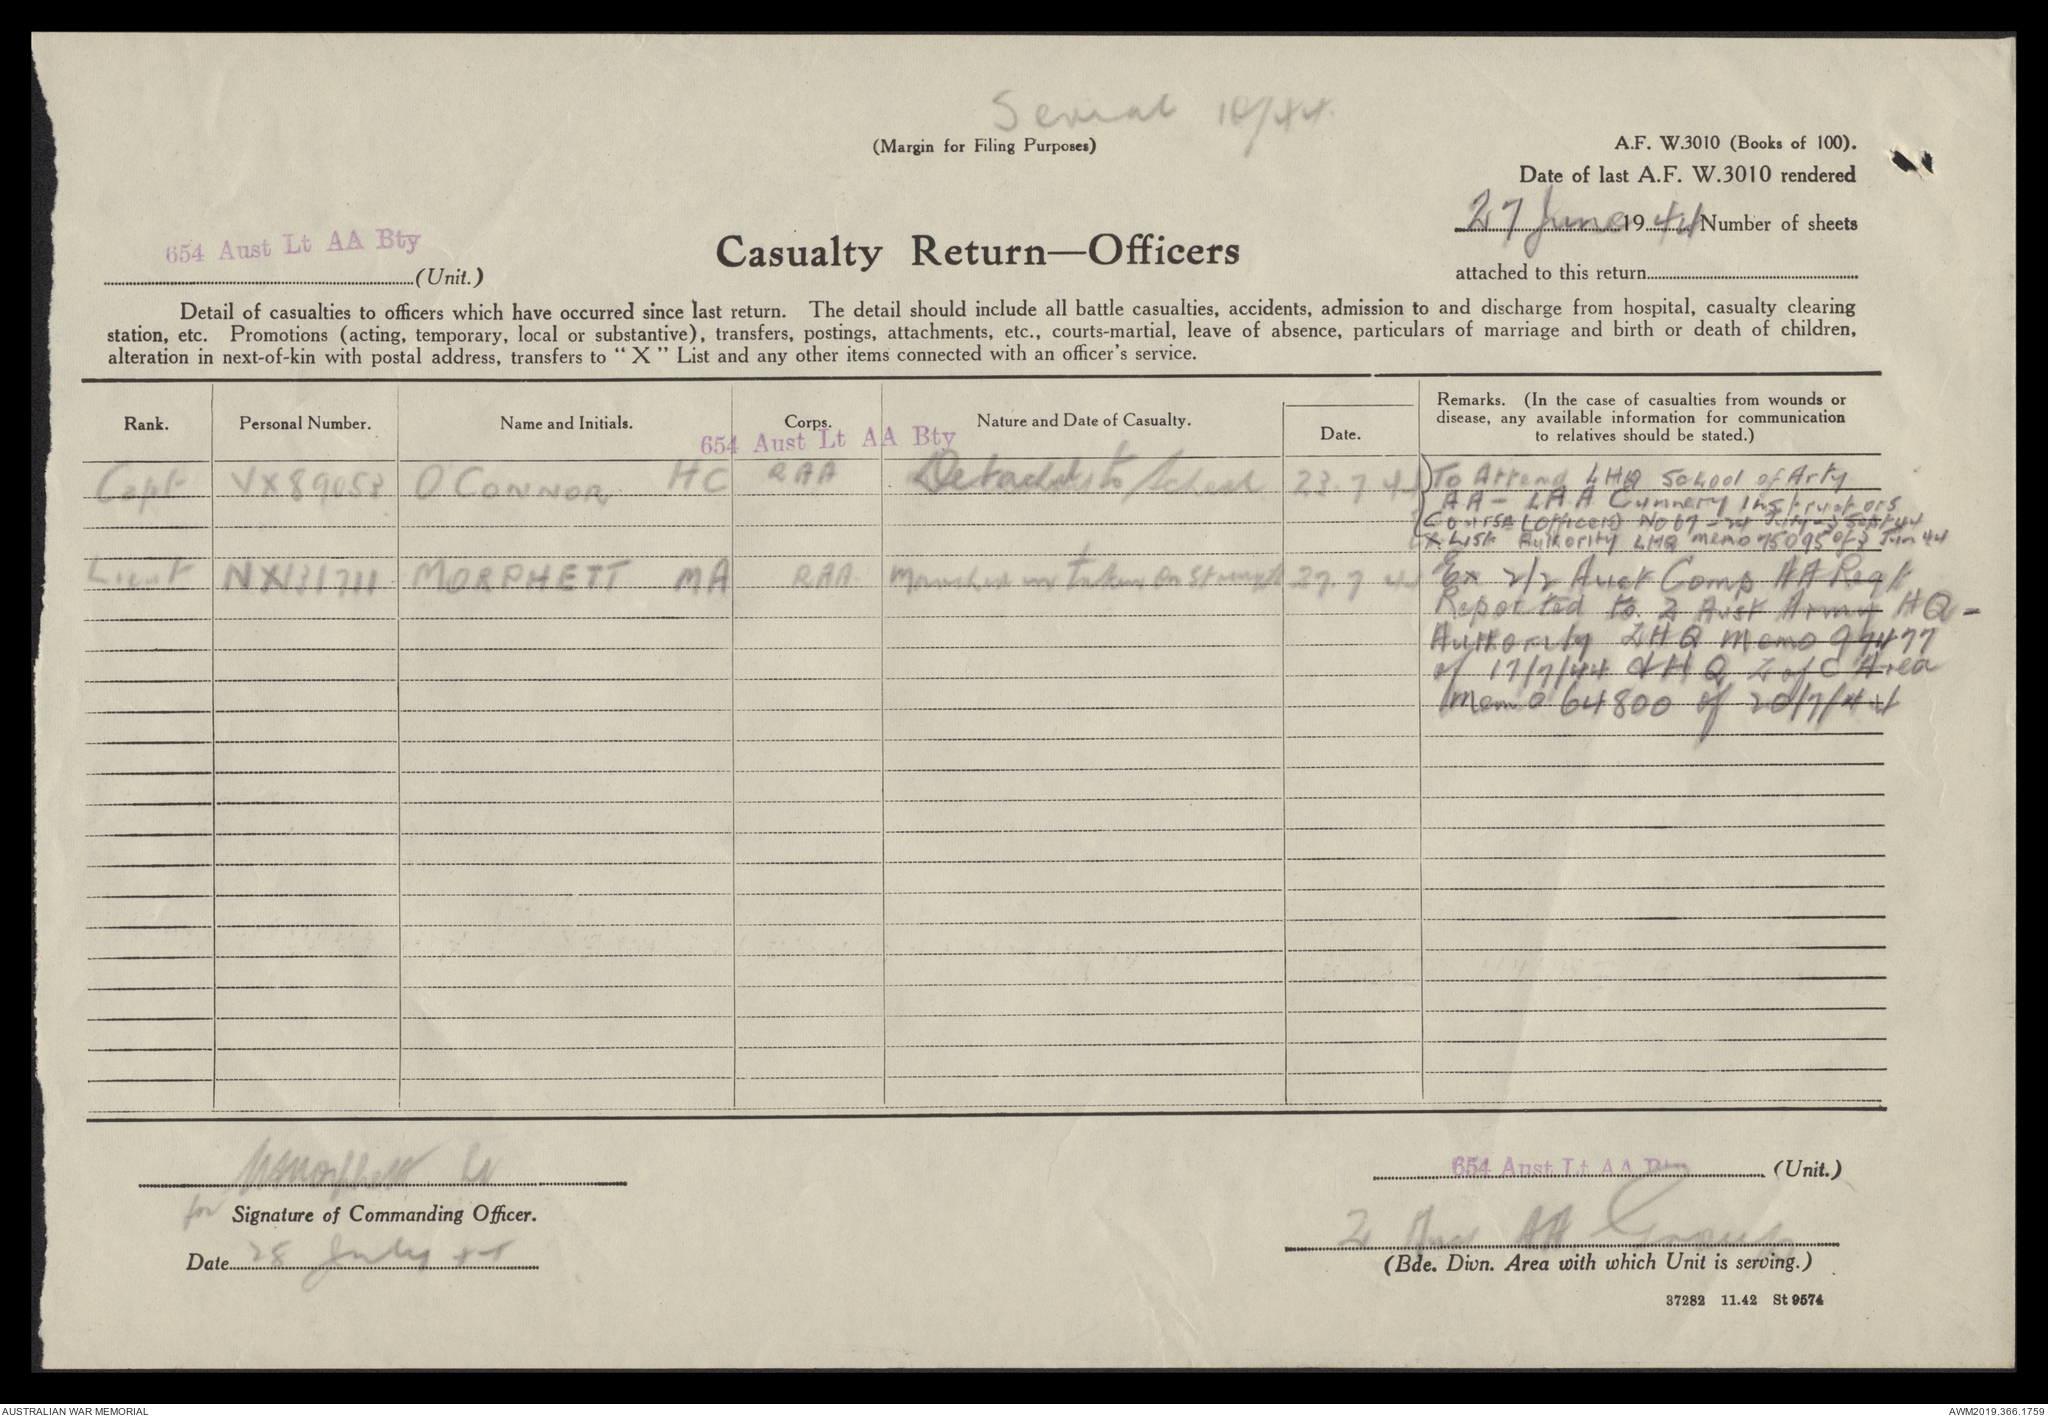 Serial 10/44.
(Margin for Filing Purposes)
A.F. W.3010 (Books of 100).
Date of last A.F. W.3010 rendered
27 June 1944 Number of sheets
attached to this return
654 Aust Lt AA Bty
(Unit.)
Casualty Return—Officers
Detail of casualties to officers which have occurred since last return. The detail should include all battle casualties, accidents, admission to and discharge from hospital, casualty clearing
station, etc. Promotions (acting, temporary, local or substantive), transfers, postings, attachments, etc., courts-martial, leave of absence, particulars of marriage and birth or death of children,
alteration in next-of-kin with postal address, transfers to " X " List and any other items connected with an officer's service.
Rank. Personal Number. Name and Initials. Corps. Nature and Date of Casualty. Date. Remarks. (In the case of casualties from wounds or
disease, any available information for communication
to relatives should be stated.)
654 Aust Lt AA Bty
Capt VX89053 O'CONNOR HC RAA Detached to School 23.7.44 To Attend LHQ School of Arty
AA - LAA Gunnery Instructors
Course (Officers) No 67 - 24 July - 3 Sept 44
X List Authority LHQ memo 75095 of 3 Jun 44
Lieut NX131711 MORPHETT MA RAA Marched in taken on strength 27.7.44 Ex 2/2 Aust Comp AA Regt
Reported to 2 Aust Army HQ -
Authority LHQ Memo 97477
of 17/7/44 & HQ L of C Area
Memo 64800 of 20/7/44
MAMorphett Lt
for Signature of Commanding Officer.
Date 28 July 44
654 Aust Lt AA Bty (Unit.)
2 Aust AA Group
(Bde. Divn. Area with which Unit is serving.)
37282 11.42 St 9574
AUSTRALIAN WAR MEMORIAL
AWM2019.366.1759